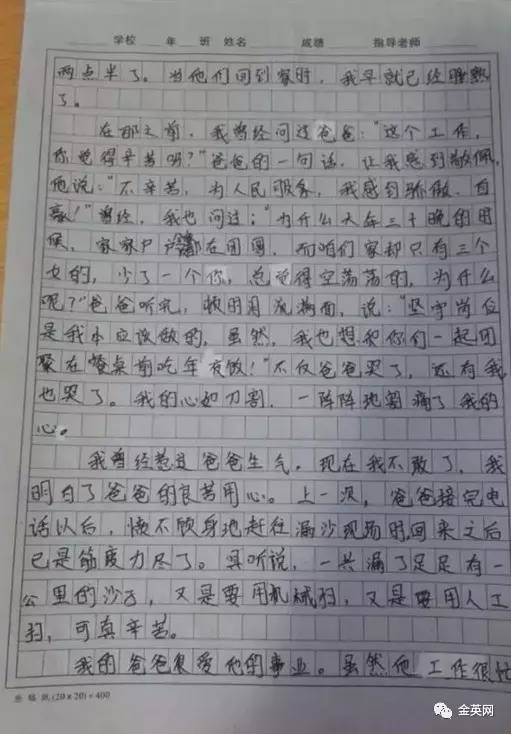 学校 年 班 姓名 成绩 指导老师
两点半了。当他们回到家时，我早就已经睡熟
了。
在那之前，我曾经问过爸爸：“这个工作，
你觉得辛苦吗？”爸爸的一句话，让我感到敬佩，
他说：“不辛苦，为人民服务，我感到骄傲、自
豪！”曾经，我也问过：“为什么大年三十晚的时
候，家家户户都在团圆，而咱们家却只有三个
女的，少了一个你，总觉得空荡荡的，为什么
呢？”爸爸听完，顿时泪流满面，说：“坚守岗位
是我本应该做的，虽然，我也想和你们一起团
聚在餐桌前吃年夜饭！”不仅爸爸哭了，还有我
也哭了。我的心如刀割，一阵阵地割痛了我的
心。
我曾经惹过爸爸生气，现在我不敢了，我
明白了爸爸的良苦用心。上一次，爸爸接完电
话以后，愤不顾身地赶往漏沙现场时，回来之后
已是筋疲力尽了。具听说，一共漏了足足有一
公里的沙子，又是要用机械扫，又是要用人工
扫，可真辛苦。
我的爸爸很爱他的事业。虽然他工作很忙
(20×20)=400
金英网